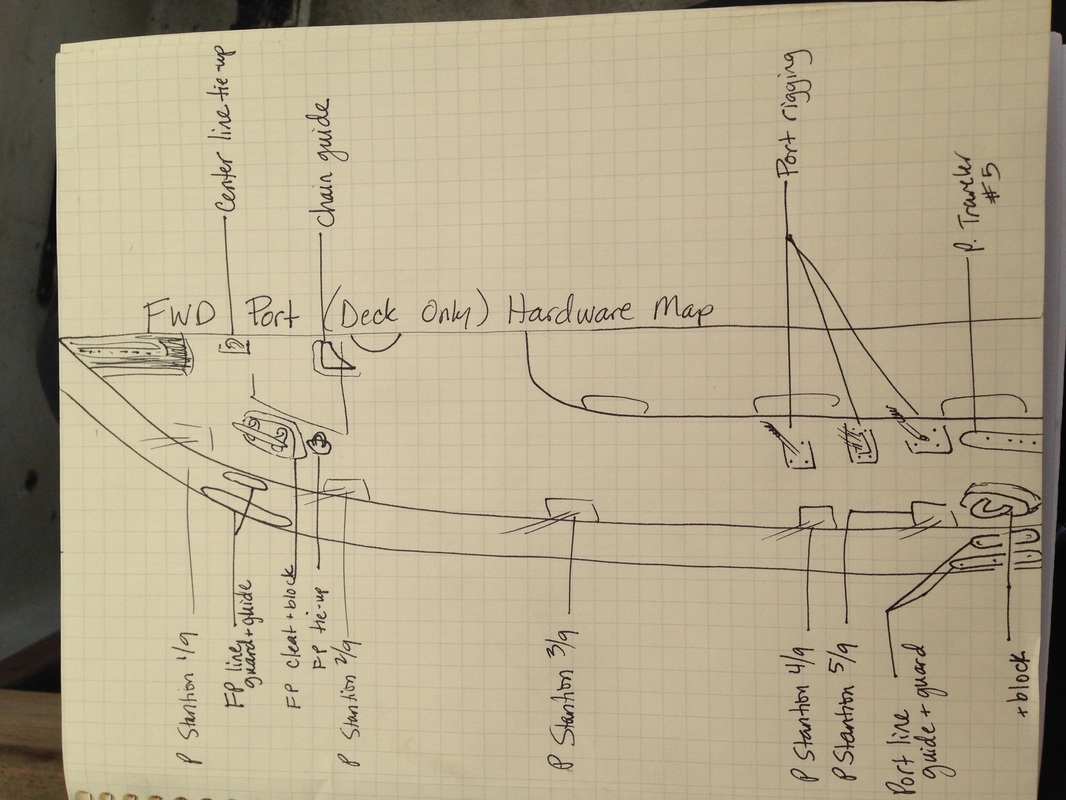 FWD Port (Deck Only) Hardware Map
Center line tie-up
Chain guide
Port rigging
P. Traveler
#5
P Stantion 1/9
FP line
guard + guide
FP cleat + block
FP tie-up
P Stantion 2/9
P Stantion 3/9
P Stantion 4/9
P Stantion 5/9
Port line
guide + guard
+ block